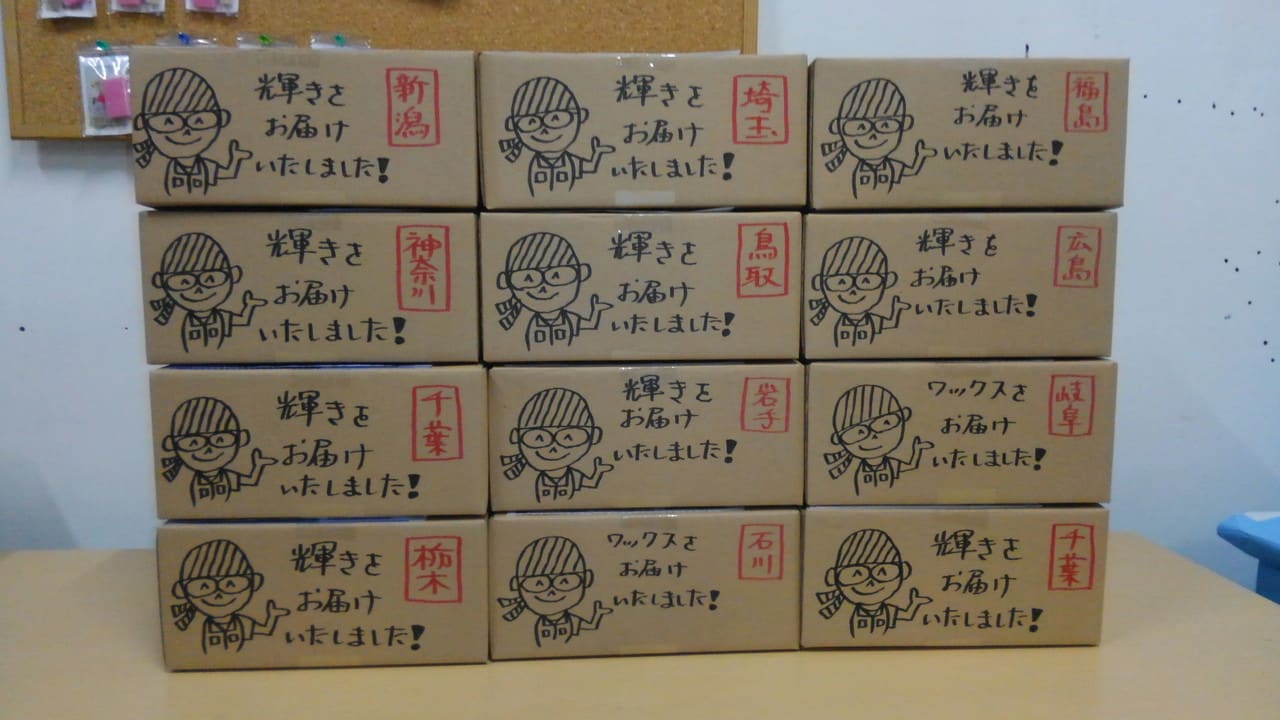 輝きを
お届け
いたしました!
新潟
輝きを
お届け
いたしました!
埼玉
輝きを
お届け
いたしました!
福島
輝きを
お届け
いたしました!
神奈川
輝きを
お届け
いたしました!
鳥取
輝きを
お届け
いたしました!
広島
輝きを
お届け
いたしました!
千葉
輝きを
お届け
いたしました!
岩手
ワックスを
お届け
いたしました!
岐阜
輝きを
お届け
いたしました!
栃木
ワックスを
お届け
いたしました!
石川
輝きを
お届け
いたしました!
千葉